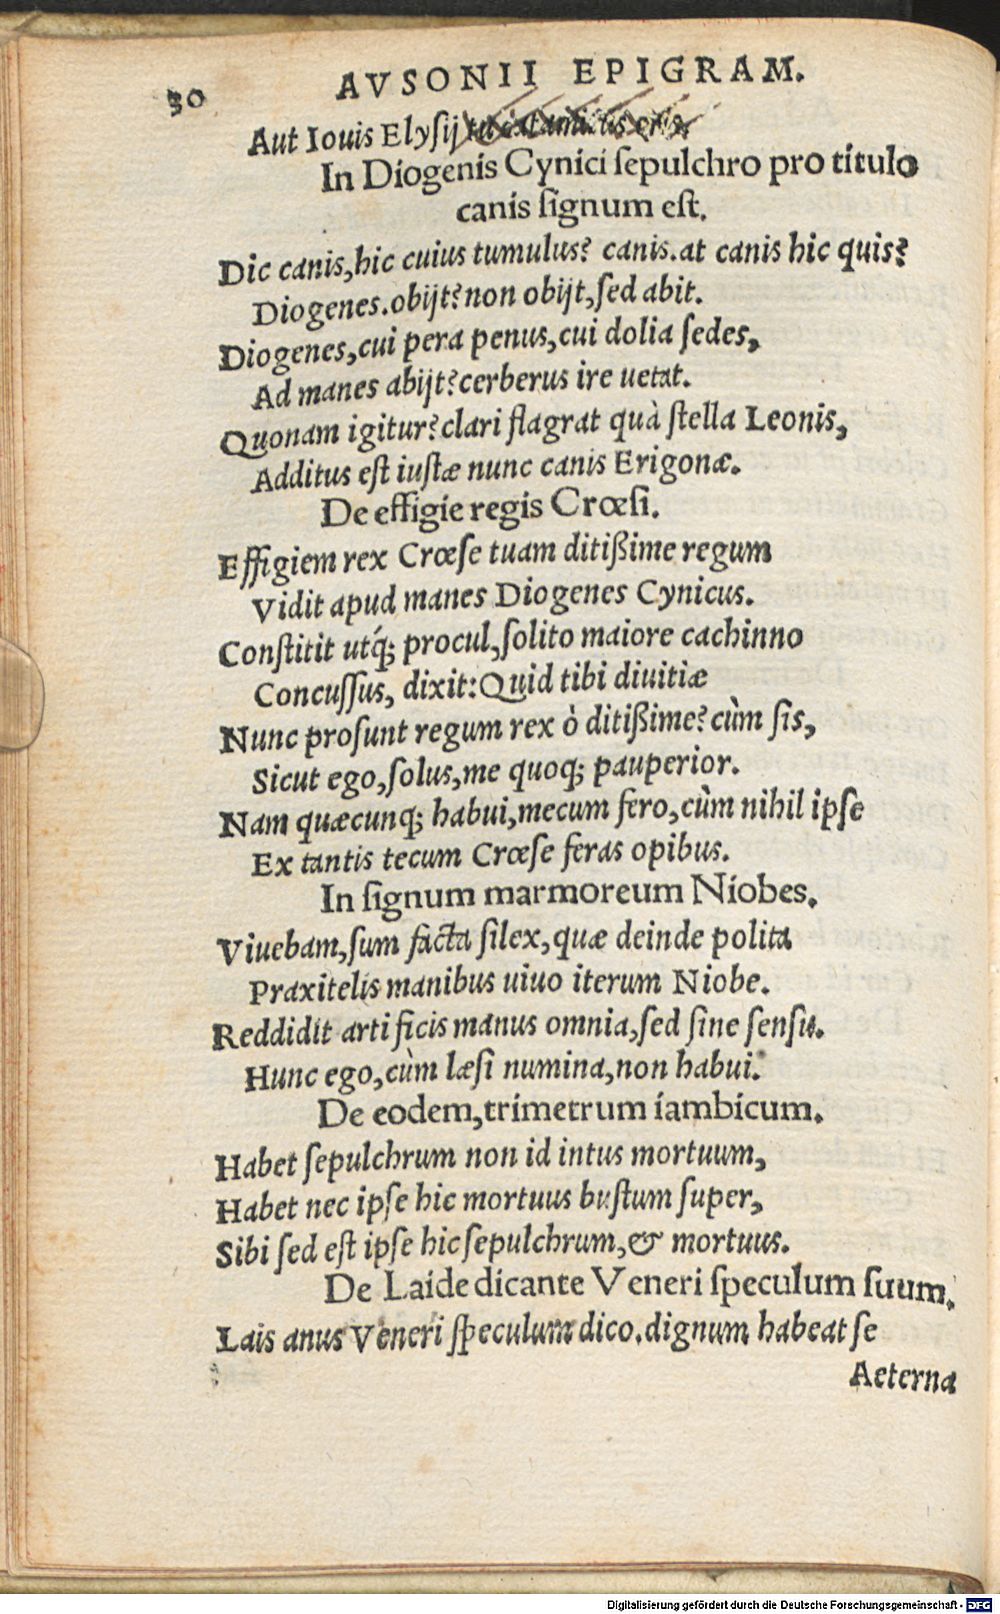 30
AVSONII EPIGRAM.
Aut Iouis Elysij
In Diogenis Cynici ſepulchro pro titulo
canis ſignum eſt.
Dic canis,hic cuius tumulus? canis.at canis hic quis?
Diogenes.obijt?non obijt,ſed abit.
Diogenes,cui pera penus,cui dolia ſedes,
Ad manes abijt?cerberus ire uetat.
Quonam igitur?clari flagrat quà ſtella Leonis,
Additus eſt iuſtæ nunc canis Erigonæ.
De effigie regis Crœſi.
Effigiem rex Crœſe tuam ditißime regum
Vidit apud manes Diogenes Cynicus.
Conſtitit utq́; procul,ſolito maiore cachinno
Concuſſus, dixit:Quid tibi diuitiæ
Nunc proſunt regum rex ò ditißime?cùm ſis,
Sicut ego,ſolus,me quoq; pauperior.
Nam quæcunq; habui,mecum fero,cùm nihil ipſe
Ex tantis tecum Crœſe feras opibus.
In ſignum marmoreum Niobes.
Viuebam,ſum facta ſilex,quæ deinde polita
Praxitelis manibus uiuo iterum Niobe.
Reddidit artificis manus omnia,ſed ſine ſenſu.
Hunc ego,cùm læſi numina,non habui.
De eodem,trimetrum iambicum.
Habet ſepulchrum non id intus mortuum,
Habet nec ipſe hic mortuus buſtum ſuper,
Sibi ſed eſt ipſe hic ſepulchrum,& mortuus.
De Laide dicante Veneri ſpeculum ſuum.
Lais anus Veneri ſpeculum dico.dignum habeat ſe
Aeterna
Digitalisierung gefördert durch die Deutsche Forschungsgemeinschaft - DFG